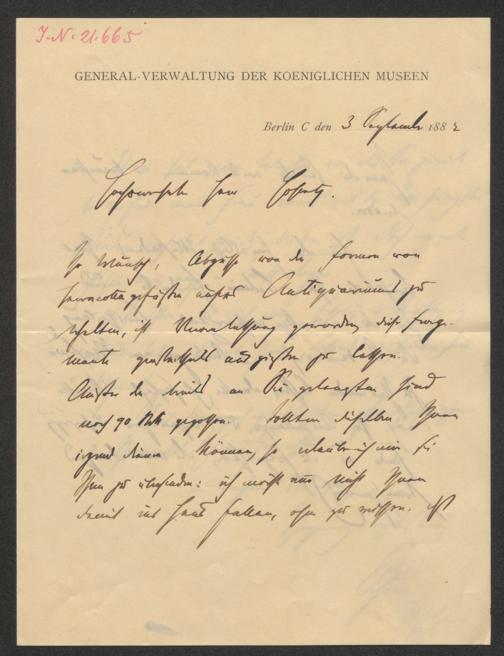 I.N. 21.665
GENERAL-VERWALTUNG DER KOENIGLICHEN MUSEEN
Berlin C den 3 September 1882
Herr
Ihr Wunsch, Abgüsse von den Formen von
Terracottagefäßen unseres Antiquariums zu
erhalten, ist Veranlassung geworden diese Frag-
mente großentheils ausgießen zu lassen.
Außer den bereits an Sie gelangten sind
noch 90 Stck gegossen. Sollten dieselben Ihnen
irgend dienen können, so erlaube ich mir sie
Ihnen zu übersenden: ich möchte nur nicht Ihnen
damit ins Haus fallen, ohne zu wissen, ob